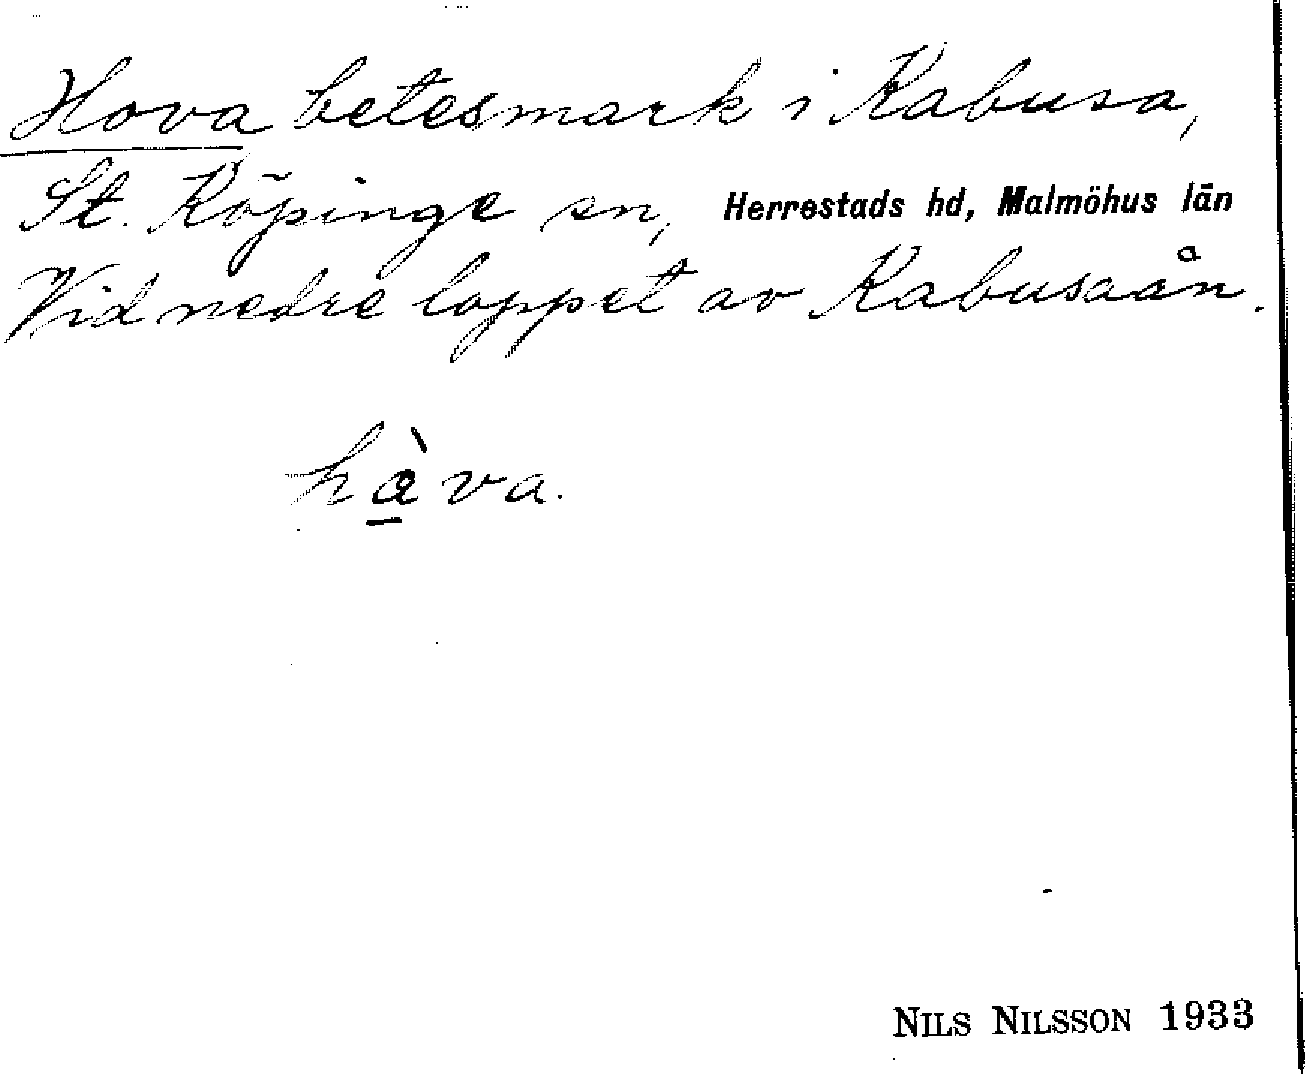 Hova betesmark i Kabusa,
St. Köpinge sn, Herrestads hd, Malmöhus län
Vid nedre loppet av Kabusaån.
hàva.
NILS NILSSON 1933